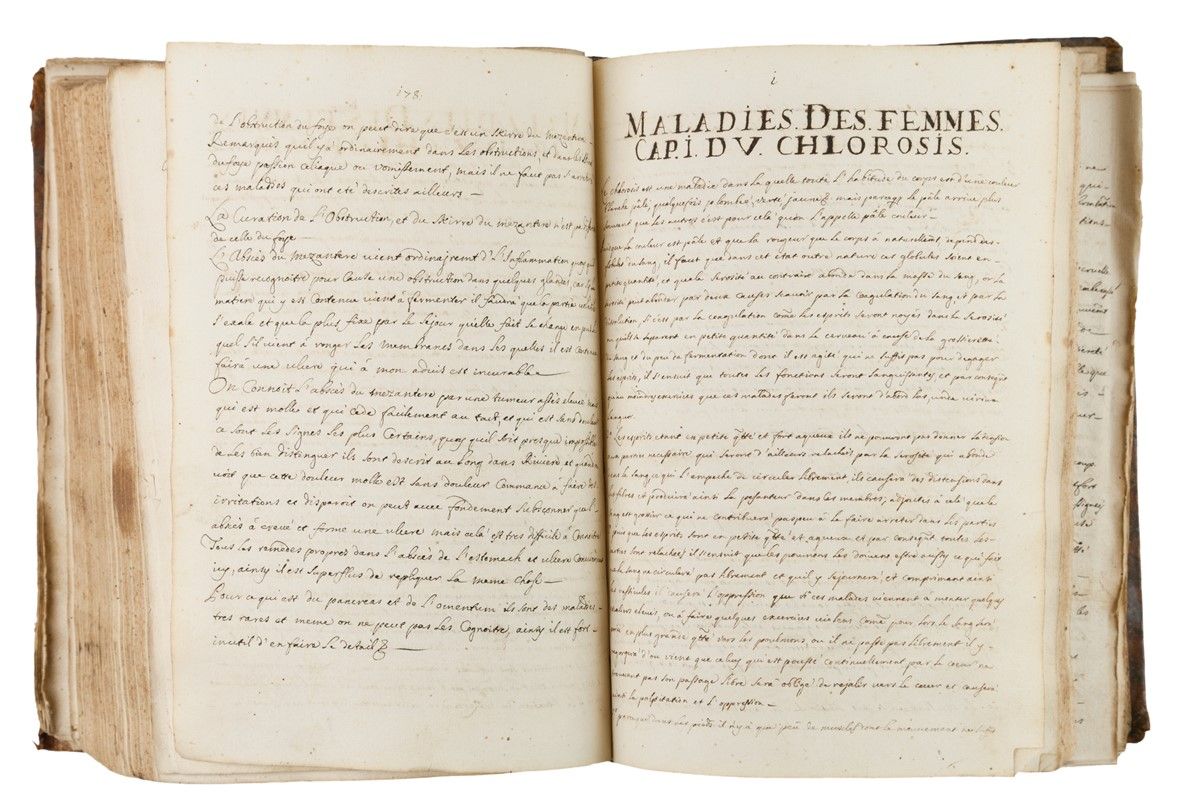 178.
de L'obstruction du foye on peut dire que c'est un skirre du mezantere
Remarqués quil y a ordinairement dans les obstructions, et dans les
du foye passion celiaque ou vomissement, mais il ne faut pas s'arreter
ces maladies qui ont eté descrites ailleurs —
La Curation de L'Obstruction, et du skirre du mezantere n'est pas
de celle du foye
L'Absces du mezantere vient ordinairemt d'L'inflammation quoy qu'on
puisse recognoitre pour Cause une obstruction dans quelques glandes car la
matiere qui y est Contenue vient à fermenter il faudra que la partie
s'exale et que la plus fixe par le sejour qu'elle fait se change en
quel s'il vient à ronger les membranes dans les quelles il est Contenu
faira une ulcere qui à mon aduis est incurable —
On Connoit L'absces du mezantere par une tumeur assés eleuée mais
qui est molle et qui Cede facilement au tact, et qui est sans douleur
ce sont les signes les plus Certains, quoy quil soit presque impossible
de les bien distinguer ils sont descrit au Long dans Riviere et quand on
voit que cette douleur molle est sans douleur Commance à faire des
irritations et disparoit on peut avec fondement subsconner que L'
absces à crevé et formé une ulcere mais cela est tres difficile à Connoitre
Tous les remedes propres dans L'absces de L'estomach et ulcere Conviennent
icy, ainsy il est superflus de repliquer la meme chose —
Pour ce qui est du pancreas et de L'omentum ils sont des maladies
tres rares et meme on ne peut pas les Cognoitre, ainsy il est fort
inutil d'en faire le detail —
i
MALADIES. DES. FEMMES.
CAP. I. DV. CHLOROSIS.
chlorosis est une maladie dans la quelle toute L'habitude du corps est d'une couleur
blanche pâle, quelquefois plombée, verte, jaune, mais parceque la pâle arrive plus
souvant que les autres c'est pour cela qu'on L'appelle pâle couleur —
la couleur est pâle et que la rougeur que le corps à naturellemt, depend des
globules du sang, il faut que dans cet etat outre nature ces globules soient en
petite quantité, et que la serosité au contraire abonde dans la masse du sang, or la
serosité peut abonder par deux causes scavoir par la coagulation du sang et par la
dissolution. Si c'est par la coagulation come les esprits seront noyés dans la serosité
en petite quantité dans le cerveau à cause de la grossiereté
du sang et du peu de fermentation dont il est agité qui ne suffit pas pour degager
les esprits, il s'ensuit que toutes les fonctions seront languissantes, et par consequt
que ces malades feront ils seront d'abord las,
Les esprits etant en petite qtté et fort aqueux ils ne pouvront pas donner la tension
necessaire qui seront d'ailleurs relachés par la serosité qui abonde
dans le sang, ce qui L'empeche de circuler librement, il causera des distensions dans
les fibres et produira ainsi la pesanteur dans les membres, adjoutés à cela que le
sang est grossier ce qui ne contribuera pas peu à le faire arreter dans les parties
puis que les esprits sont en petite qtté et aqueux et par consequt toutes les
parties sont relachés, il s'ensuit que les poumons les doivent estre aussy ce qui fait
que le sang ne circulera pas librement et quil y sejournera, et comprimant ainsi
les vesicules il causera L'oppression que si ces malades viennent à monter quelque
eleués, ou à faire quelques exercices violens come pour lors le sang sera
en plus grande qtté vers les poulmons, ou il ne passe pas librement il y
d'ou vient que celuy qui est poussé continuellement par le cœur ne
trouvant pas son passage libre sera obligé de regaler vers le cœur et causera
ainsi la palpitation et L'oppression —